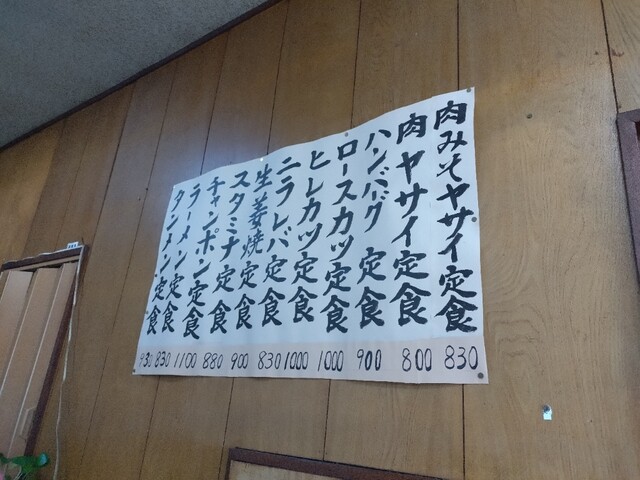 肉みそヤサイ定食 830
肉ヤサイ定食 800
ハンバグ定食 900
ロースカツ定食 1000
ヒレカツ定食 1000
ニラレバ定食 830
生姜焼定食 900
スタミナ定食 880
チャンポン定食 1100
ラーメン定食 830
タンメン定食 930